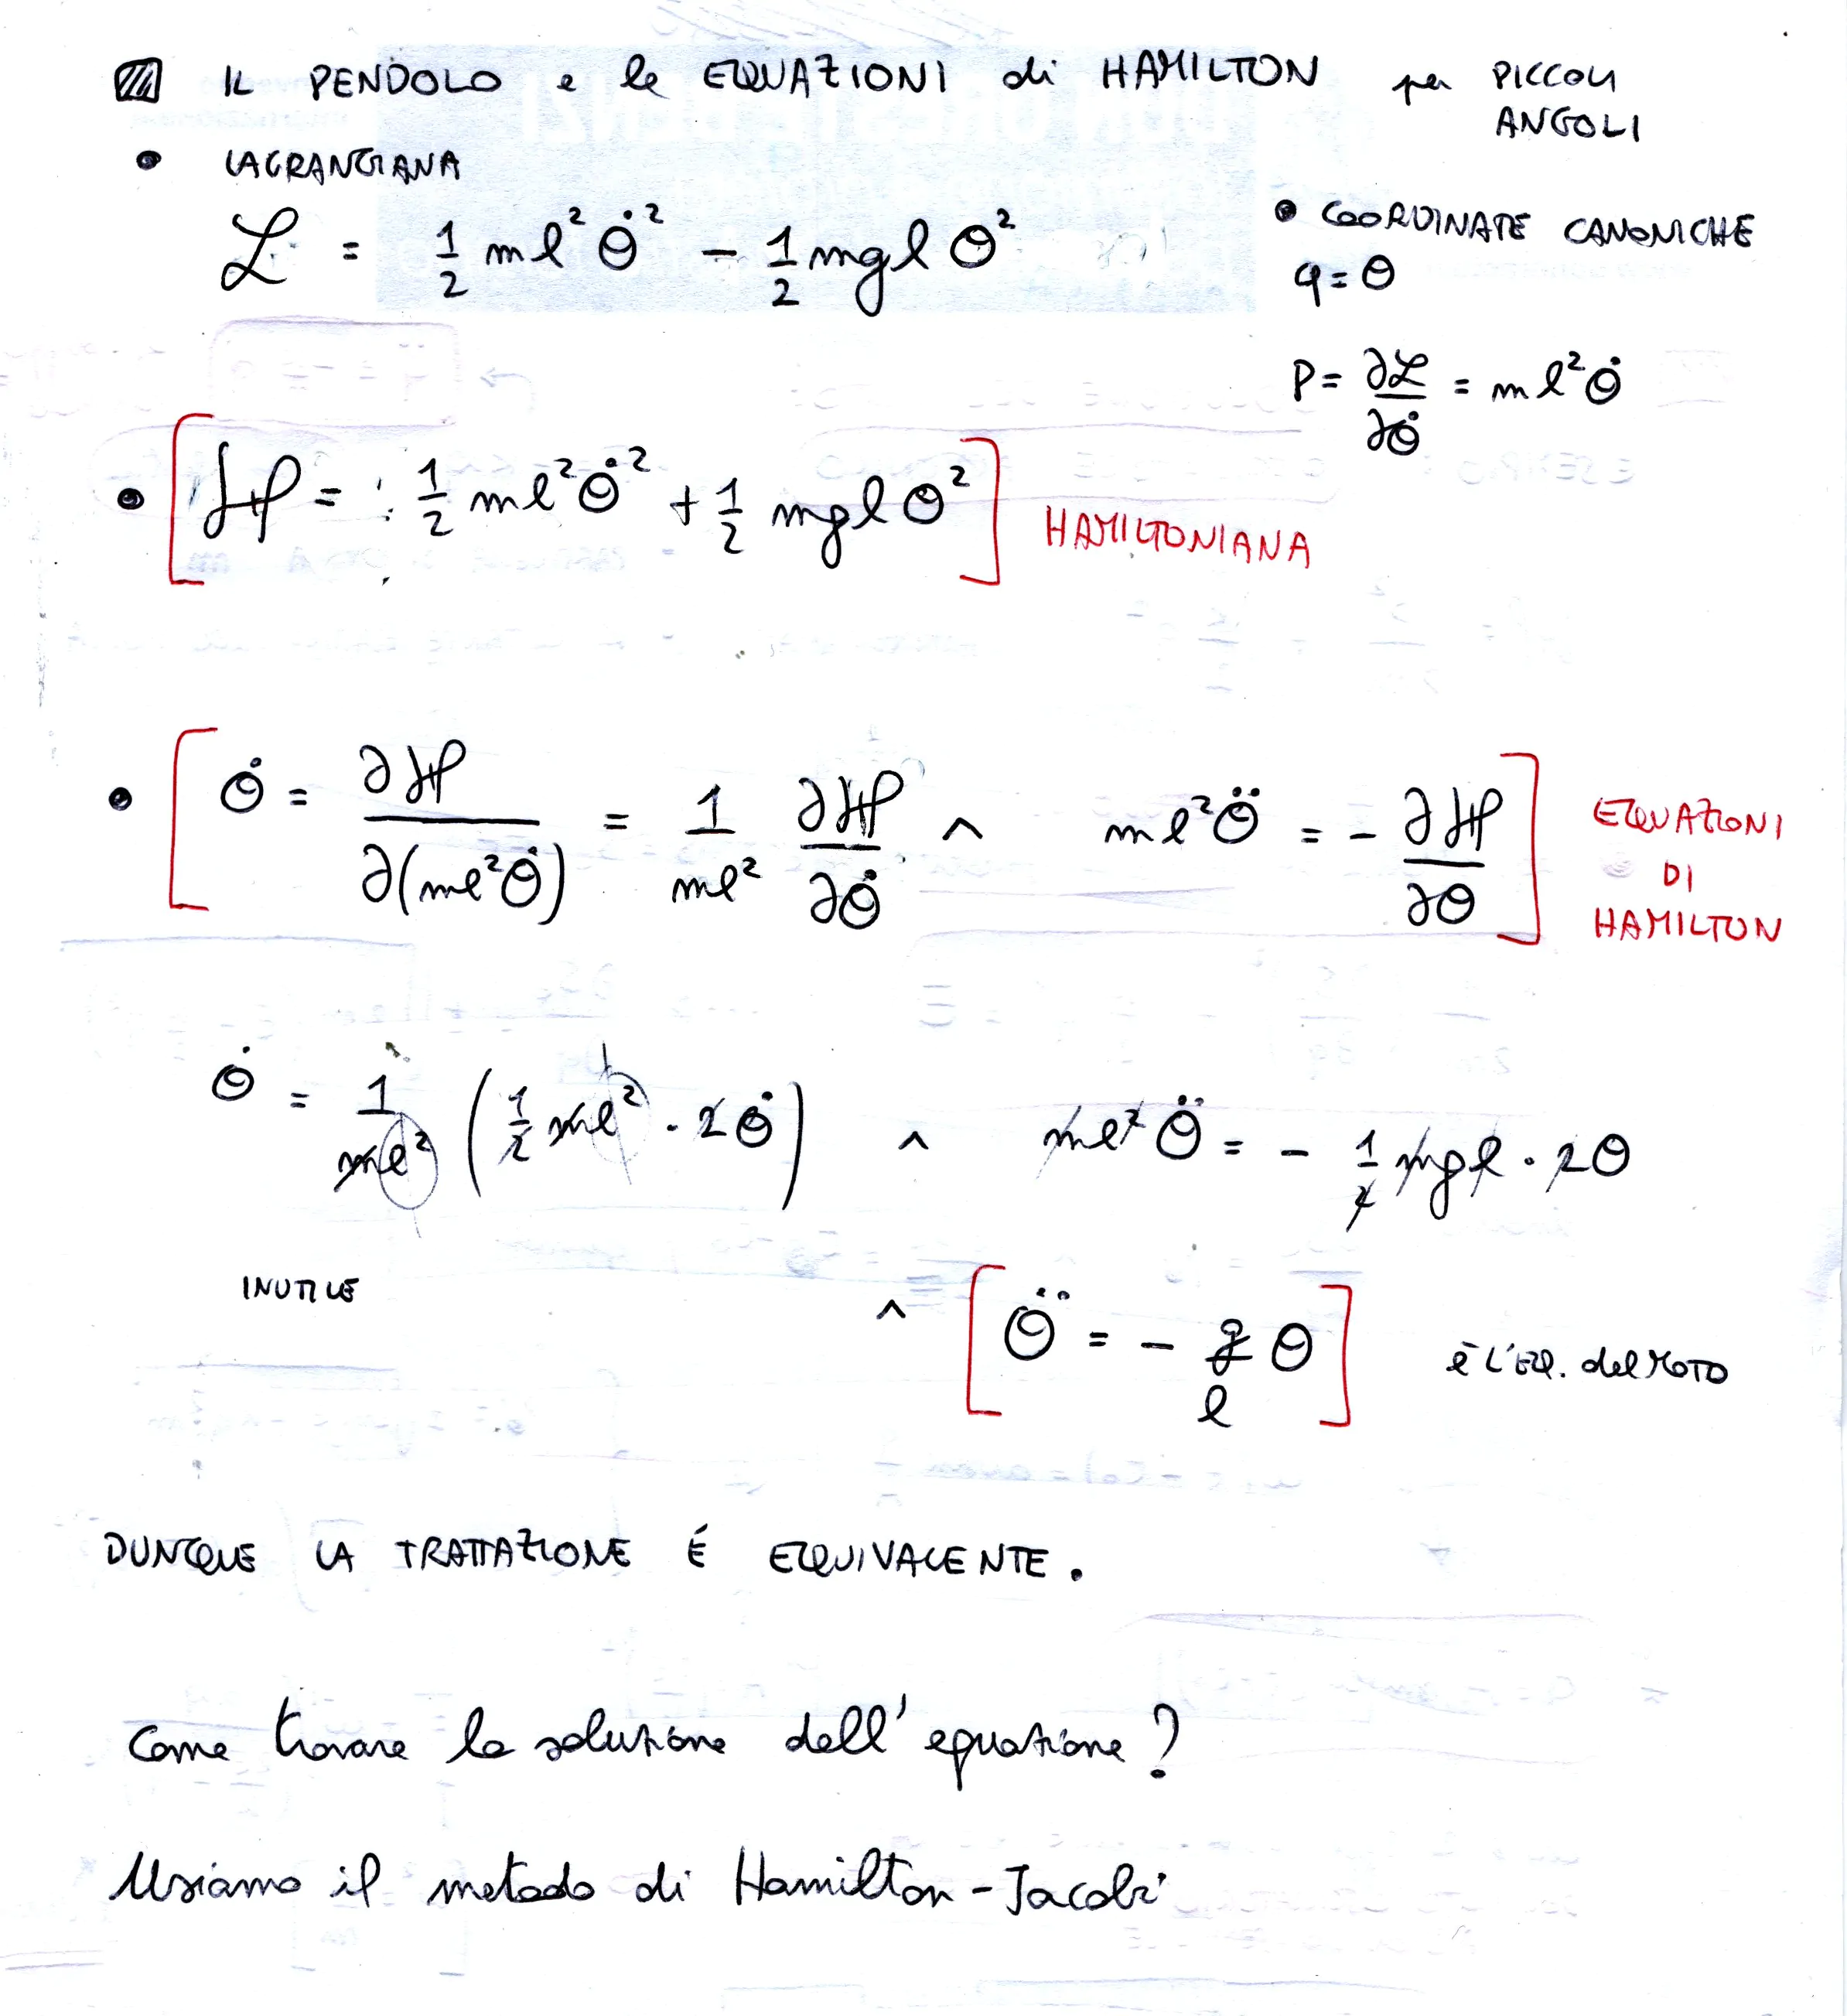 IL PENDOLO e le EQUAZIONI di HAMILTON per PICCOLI
ANGOLI
• LAGRANGIANA
ℒ = 1/2 ml² θ̇² - 1/2 mgl θ²
• COORDINATE CANONICHE
q = θ
P = ∂ℒ/∂θ̇ = ml²θ̇
• [ℋ = 1/2 ml²θ̇² + 1/2 mglθ²] HAMILTONIANA
• [θ̇ = ∂ℋ/∂(ml²θ̇) = 1/ml² ∂ℋ/∂θ̇ ^ ml²θ̈ = - ∂ℋ/∂θ] EQUAZIONI
DI
HAMILTON
θ̇ = 1/ml² (1/2 ml² · 2θ̇) ^ ml²θ̈ = - 1/2 mgl · 2θ
INUTILE ^ [θ̈ = - g/l θ] è L'EQ. del MOTO
DUNQUE LA TRATTAZIONE É EQUIVALENTE.
Come trovare la soluzione dell'equazione?
Usiamo il metodo di Hamilton-Jacobi